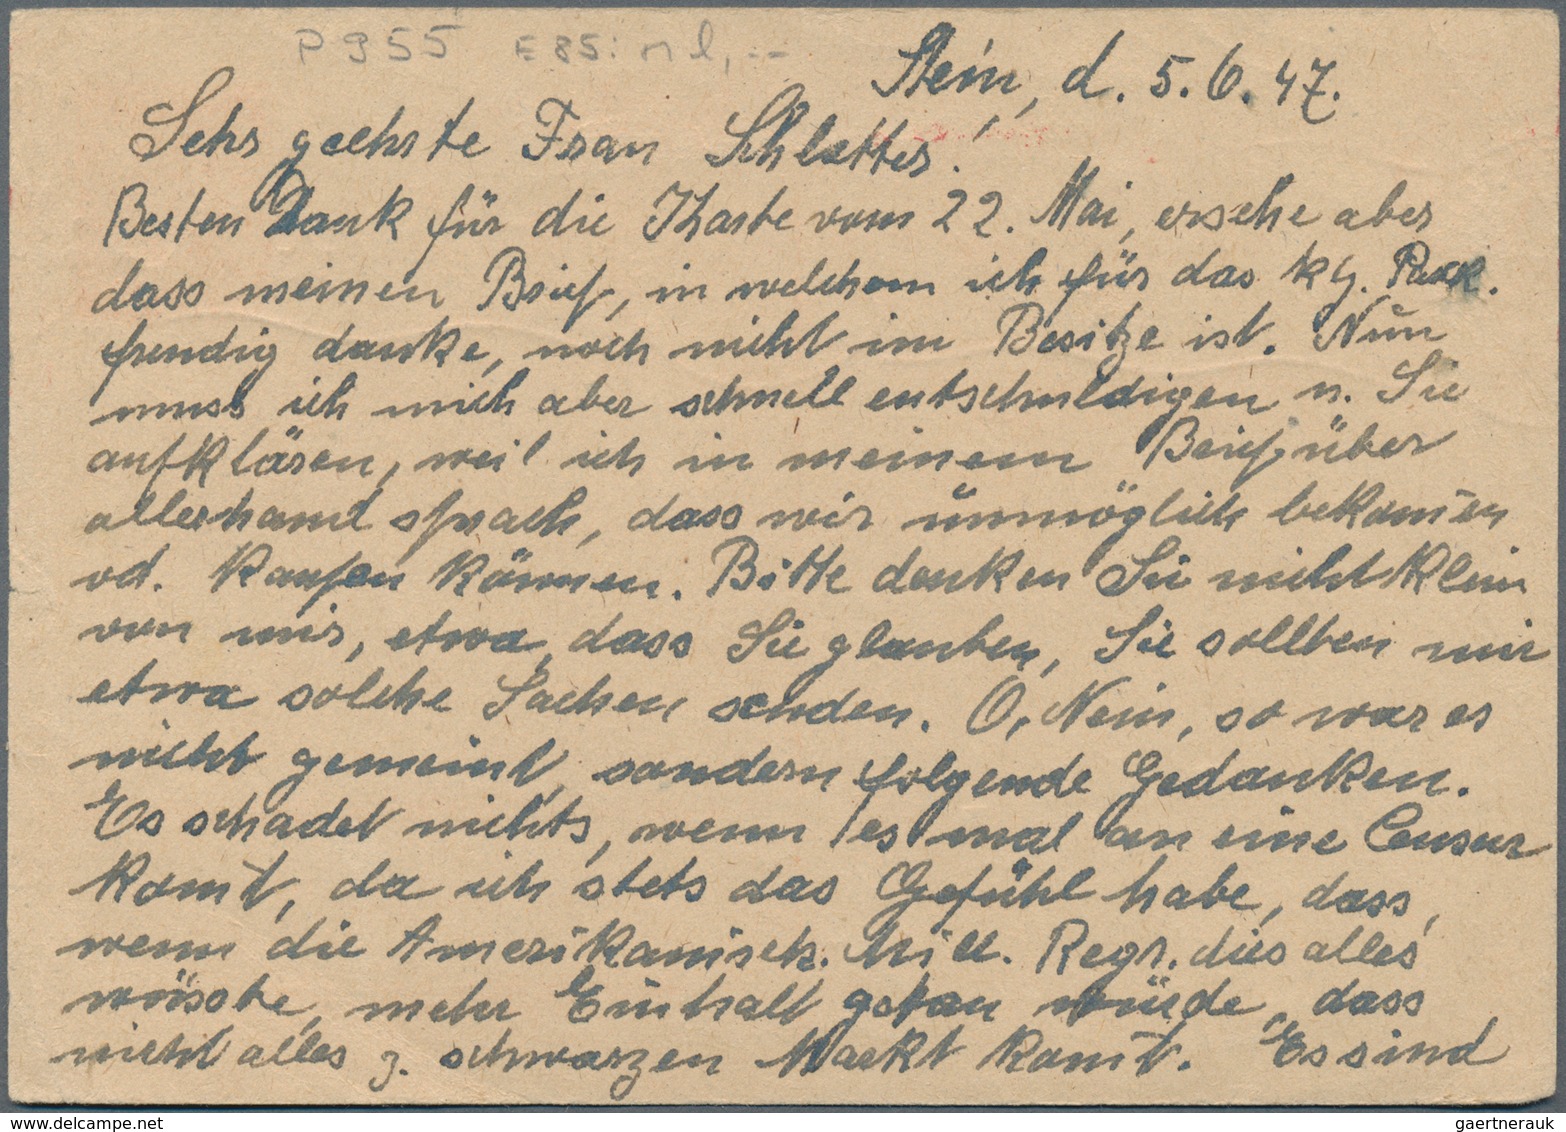 P 955 E 85:
Stein, d. 5.6.47.
Sehr geehrte Frau Schlatter!
Besten Dank für die Kharte vom 22. Mai, ersehe aber
dass meinen Brief, in welchem ich für das kg. Pack.
freudig danke, noch nicht im Besitze ist. Nun
muss ich mich aber schnell entschuldigen u. Sie
aufklären, weil ich in meinem Brief über
allerhand sprach, dass wir unmöglich bekom̅en
od. kaufen können. Bitte denken Sie nicht klein
von mir, etwa, dass Sie glauben, Sie sollten mir
etwa solche Sachen senden. O, Nein, so war es
nicht gemeint, sondern folgende Gedanken.
Es schadet nichts, wenn es mal an eine Censur
kom̅t, da ich stets das Gefühl habe, dass,
wenn die Amerikanisch. Mill. Regr. dies alles
wüsste, mehr Einhalt getan würde, dass
nicht alles z. schwarzen Markt kom̅t. Es sind
gaertnerauk / delcampe.net